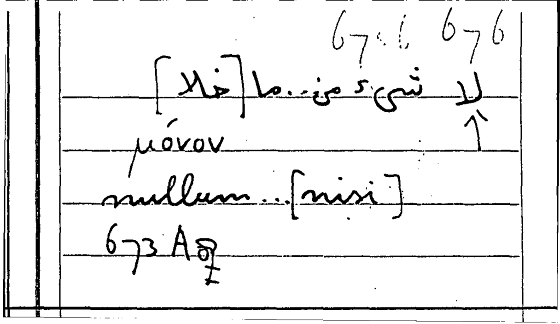 676
لا شيء من..ما [خلا]
↑
μόνον
nullum...[nisi]
673 A